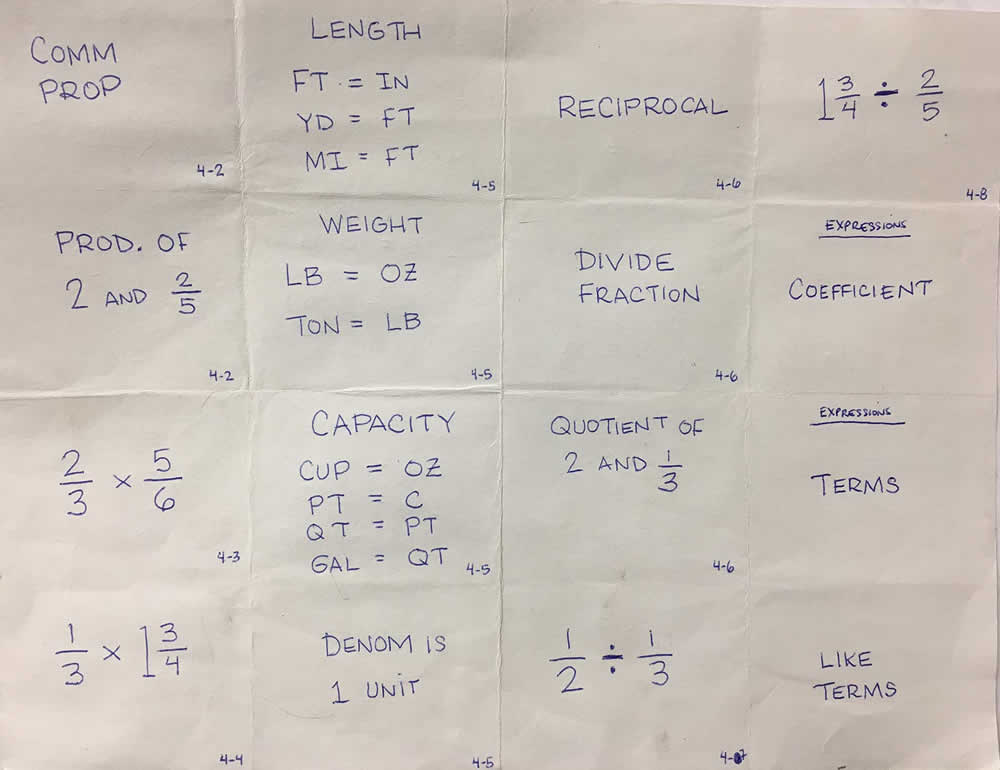 COMM
PROP
4-2
LENGTH
FT = IN
YD = FT
MI = FT
4-5
RECIPROCAL
4-6
1 3/4 ÷ 2/5
4-8
PROD. OF
2 AND 2/5
4-2
WEIGHT
LB = OZ
TON = LB
4-5
DIVIDE
FRACTION
4-6
EXPRESSIONS
COEFFICIENT
2/3 × 5/6
4-3
CAPACITY
CUP = OZ
PT = C
QT = PT
GAL = QT
4-5
QUOTIENT OF
2 AND 1/3
4-6
EXPRESSIONS
TERMS
1/3 × 1 3/4
4-4
DENOM IS
1 UNIT
4-5
1/2 ÷ 1/3
4-7
LIKE
TERMS